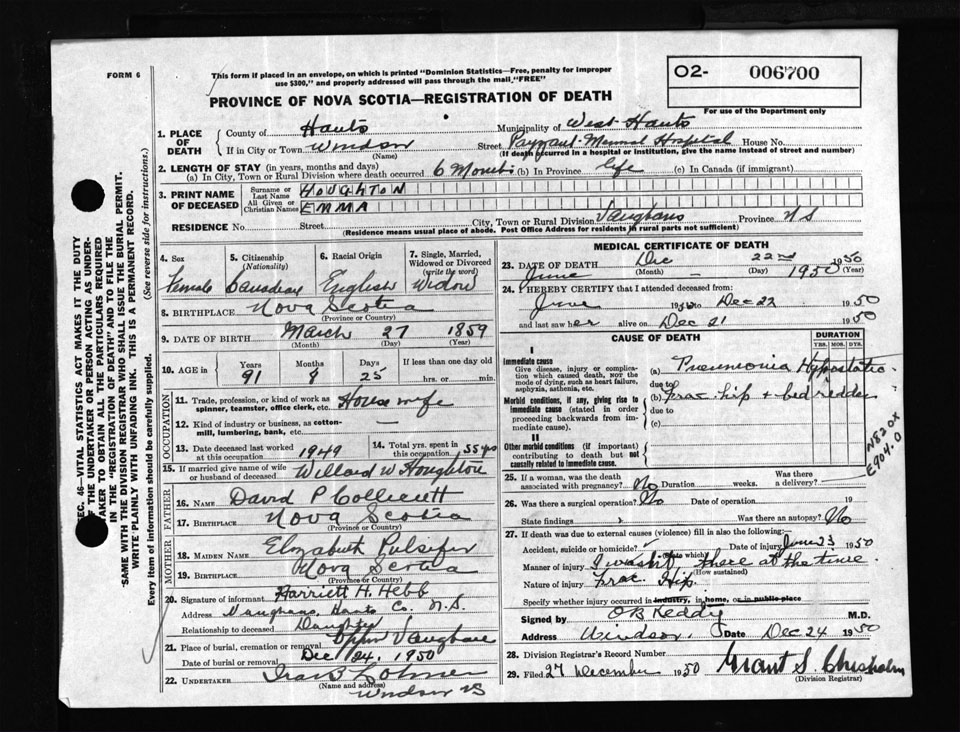 FORM 6
This form if placed in an envelope, on which is printed "Dominion Statistics—Free, penalty for improper
use $300," and properly addressed will pass through the mail "FREE"
O2- 006700
For use of the Department only
PROVINCE OF NOVA SCOTIA—REGISTRATION OF DEATH
1. PLACE OF DEATH County of Hants Municipality of West Hants
If in City or Town Windsor Street Payzant Memorl Hospital House No.
(Name) (If death occurred in a hospital or institution, give the name instead of street and number)
2. LENGTH OF STAY (in years, months and days)
(a) In City, Town or Rural Division where death occurred 6 Months (b) In Province life (c) In Canada (if immigrant)
3. PRINT NAME OF DECEASED Surname or Last Name HOUGHTON
All Given or Christian Names EMMA
RESIDENCE No. Street City, Town or Rural Division Vaughans Province N S
(Residence means usual place of abode. Post Office Address for residents in rural parts not sufficient)
4. Sex Female
5. Citizenship (Nationality) Canadian
6. Racial Origin English
7. Single, Married, Widowed or Divorced (write the word) Widow
8. BIRTHPLACE Nova Scotia
(Province or Country)
9. DATE OF BIRTH March 27 1859
(Month) (Day) (Year)
10. AGE in Years 91 Months 8 Days 25 If less than one day old hrs. or min.
OCCUPATION
11. Trade, profession, or kind of work as spinner, teamster, office clerk, etc. Housewife
12. Kind of industry or business, as cotton-mill, lumbering, bank, etc. —
13. Date deceased last worked at this occupation 1949
14. Total yrs. spent in this occupation 55 yrs
15. If married give name of wife or husband of deceased Willard W Houghton
FATHER
16. NAME David P Collicutt
17. BIRTHPLACE Nova Scotia
(Province or Country)
MOTHER
18. MAIDEN NAME Elizabeth Pulsifer
19. BIRTHPLACE Nova Scotia
(Province or Country)
20. Signature of informant Harriett H. Hebb
Address Vaughans Hants Co. N.S.
Relationship to deceased Daughter
21. Place of burial, cremation or removal Upper Vaughans
Date of burial or removal Dec 24, 1950
22. UNDERTAKER
(Name and address)
Windsor NS
MEDICAL CERTIFICATE OF DEATH
23. DATE OF DEATH Dec 22nd 1950
June (Month) (Day) 1950 (Year)
24. I HEREBY CERTIFY that I attended deceased from:
June 1950 to Dec 22 1950
and last saw her alive on Dec 21 1950
CAUSE OF DEATH
DURATION
YRS. MOS. DYS.
I
Immediate cause
Give disease, injury or complication which caused death, NOT the mode of dying, such as heart failure, asphyxia, asthenia, etc.
(a) Pneumonia Hypostatic
due to
Morbid conditions, if any, giving rise to immediate cause (stated in order proceeding backwards from immediate cause).
(b) Frac. hip + bedridden
due to
(c)
II
Other morbid conditions (if important) contributing to death but not causally related to immediate cause.
N820X
E904.0
25. If a woman, was the death associated with pregnancy? No Duration weeks. Was there a delivery?
26. Was there a surgical operation? No Date of operation 19
State findings Was there an autopsy? No
27. If death was due to external causes (violence) fill in also the following:—
Accident, suicide or homicide? Date of injury June 23 1950
(State which)
Manner of injury I wasn't there at the time.
(How sustained)
Nature of injury Frac. Hip.
Specify whether injury occurred in industry, in home, or in public place
Signed by O B Keddy M.D.
Address Windsor. Date Dec 24 1950
28. Division Registrar's Record Number
29. Filed 27 December 1950 Grant S. Chisholm
(Division Registrar)
SEC. 46—VITAL STATISTICS ACT MAKES IT THE DUTY
OF THE UNDERTAKER OR PERSON ACTING AS UNDER-
TAKER TO OBTAIN ALL THE PARTICULARS REQUIRED
IN THE "REGISTRATION OF DEATH" AND TO FILE THE
SAME WITH THE DIVISION REGISTRAR WHO SHALL ISSUE THE BURIAL PERMIT.
WRITE PLAINLY WITH UNFADING INK. THIS IS A PERMANENT RECORD.
Every item of information should be carefully supplied. (See reverse side for instructions.)